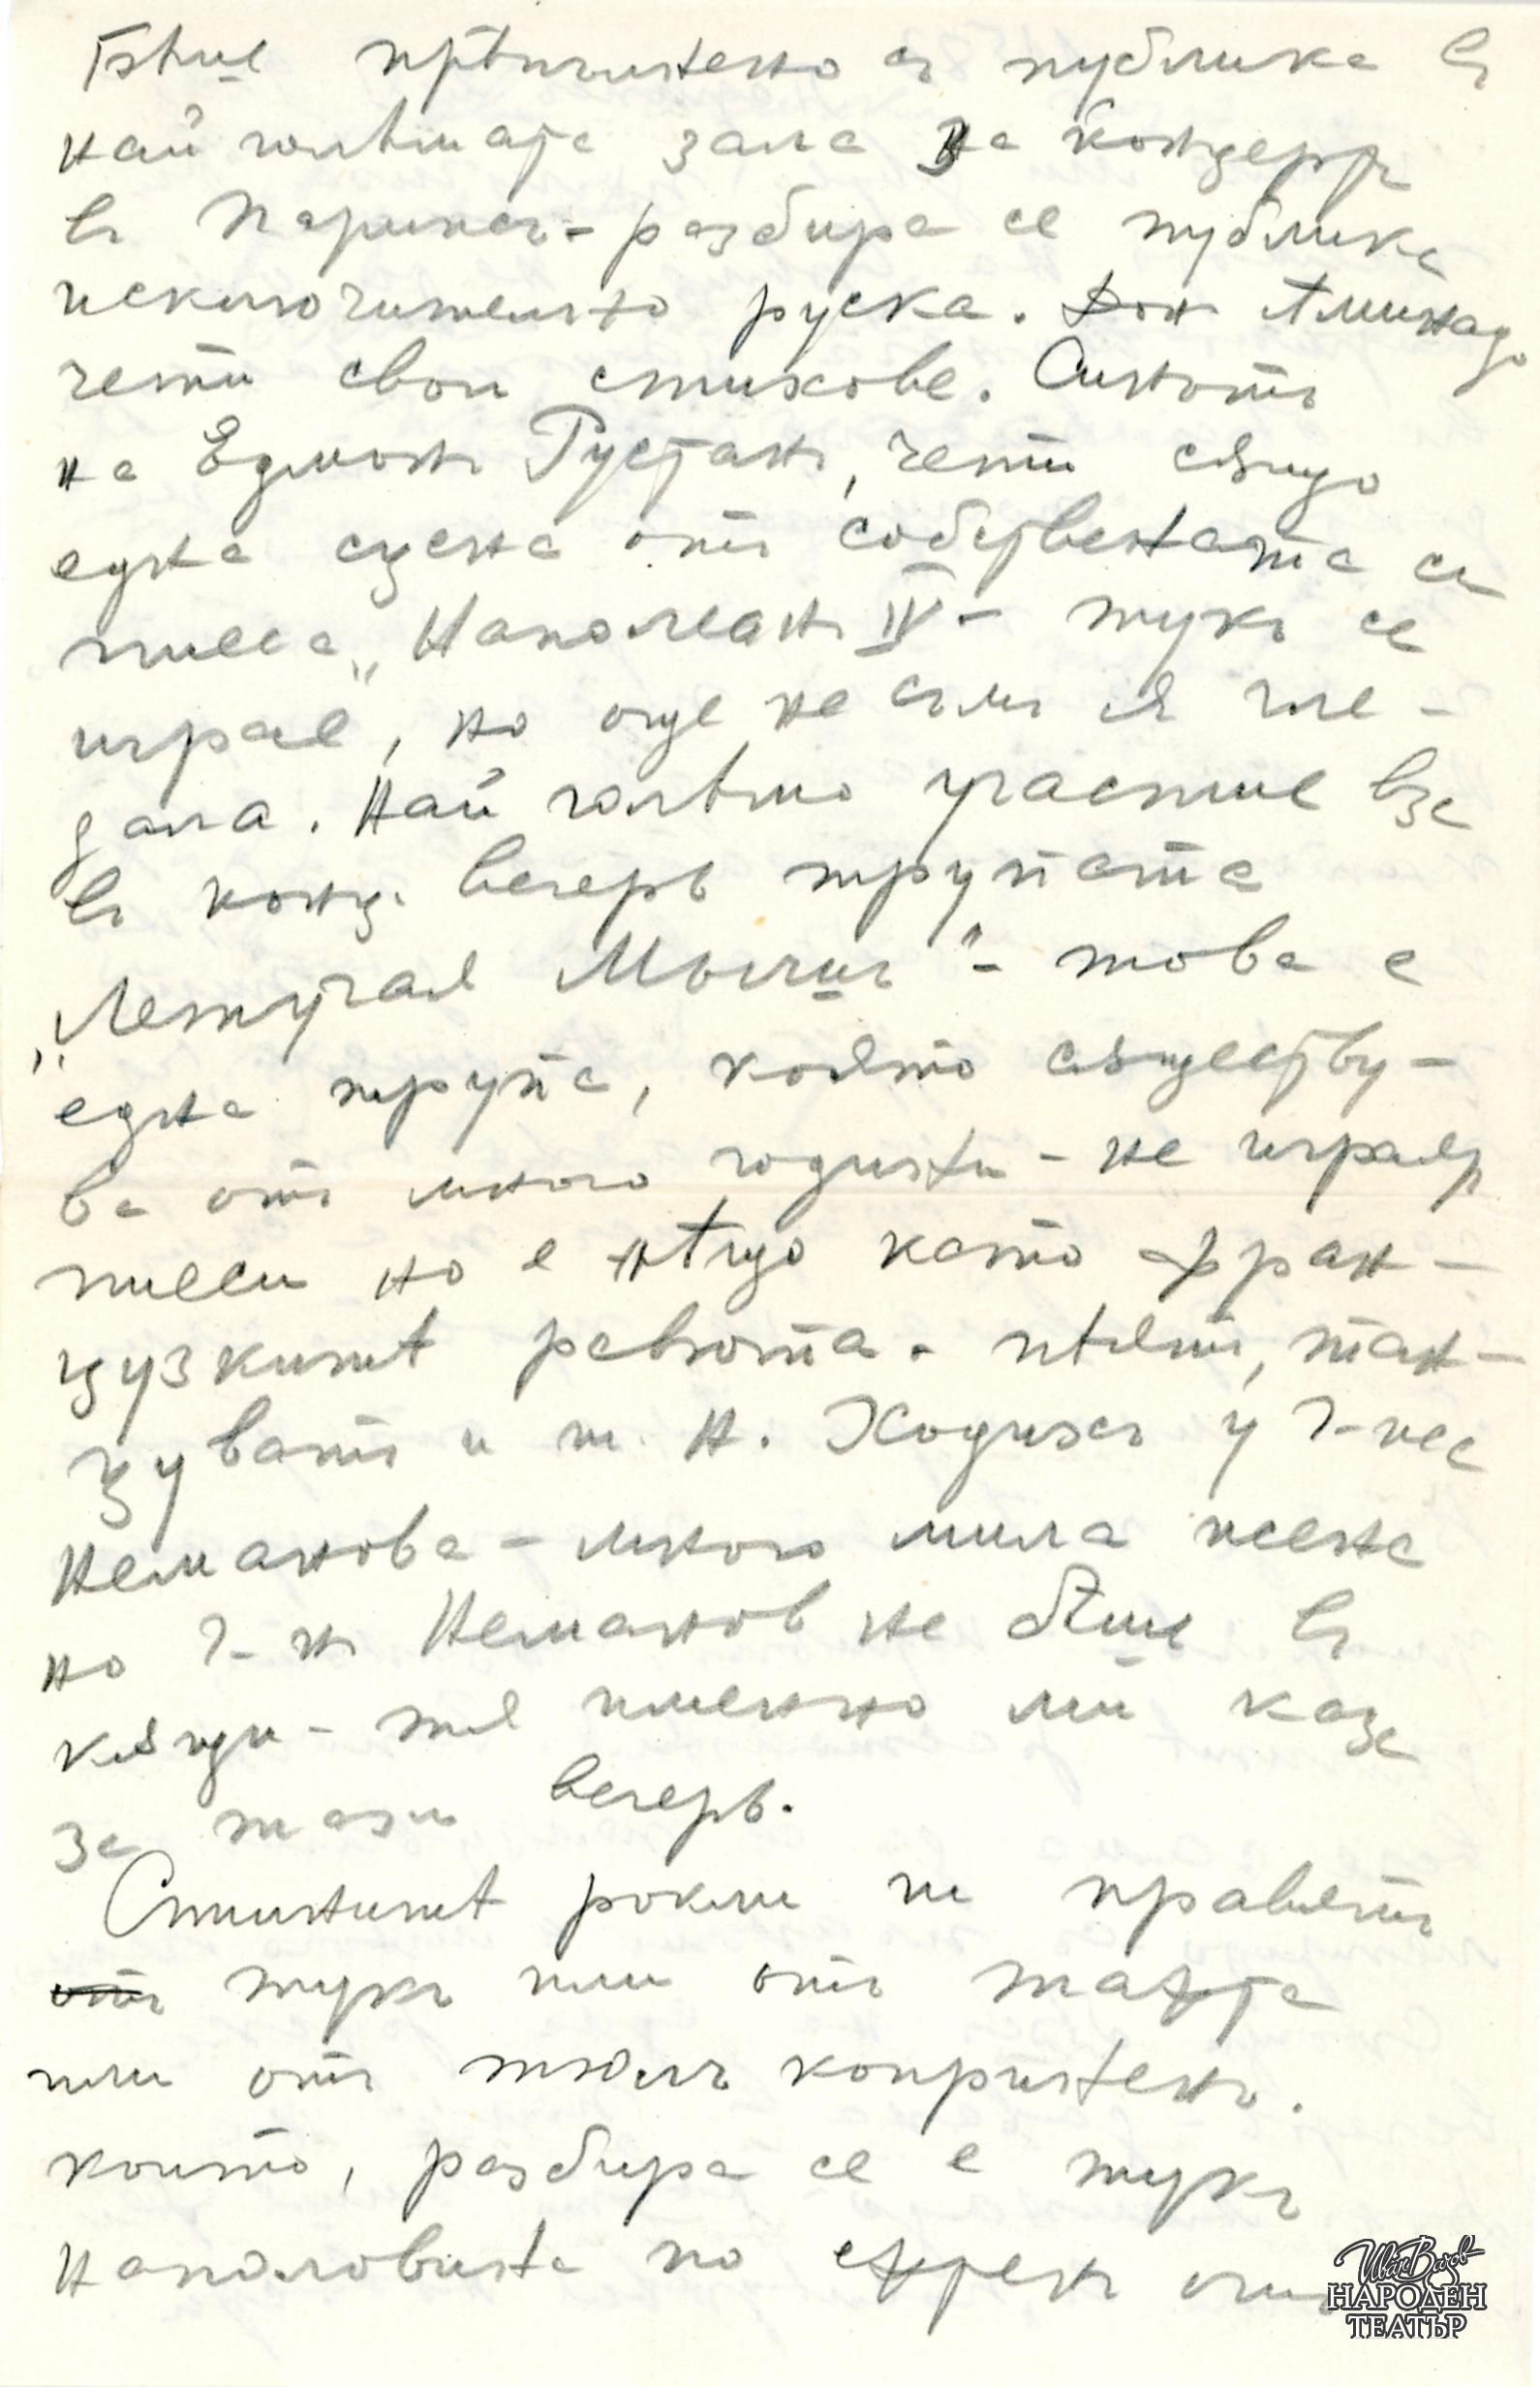 Бѣше прѣпълнено съ публика въ
най голѣмата зала за концертъ
въ Парижъ - разбира се публика
исключително руска. Дон Аминадо
чети свои стихове. Синътъ
на Едмонъ Ростанъ, чети сѫщо
една сцена отъ собствената си
пиеса „Наполеонъ IV - тукъ се
играе", но още не съмъ я гле-
дала. Най голѣмо участие взе
въ конц. вечерь трупата
„Летучая Мышь" - това е
една трупа, която сѫществу-
ва отъ много години - не играятъ
пиеси но е нѣщо като фран-
цузкитѣ ревюта. пѣятъ, тан-
цуватъ и т. н. Ходихъ у г-жа
Неманова - много мила жена
но г-нъ Неманов не бѣше въ
кѫщи - тя именно ми каза
за тази вечерь.
Стилнитѣ рокли ги правятъ
отъ тукъ или отъ тафта
или отъ тюлъ копринень.
който, разбира се е тукъ
наполовина по ефтенъ
Иван Вазов
НАРОДЕН
ТЕАТЪР